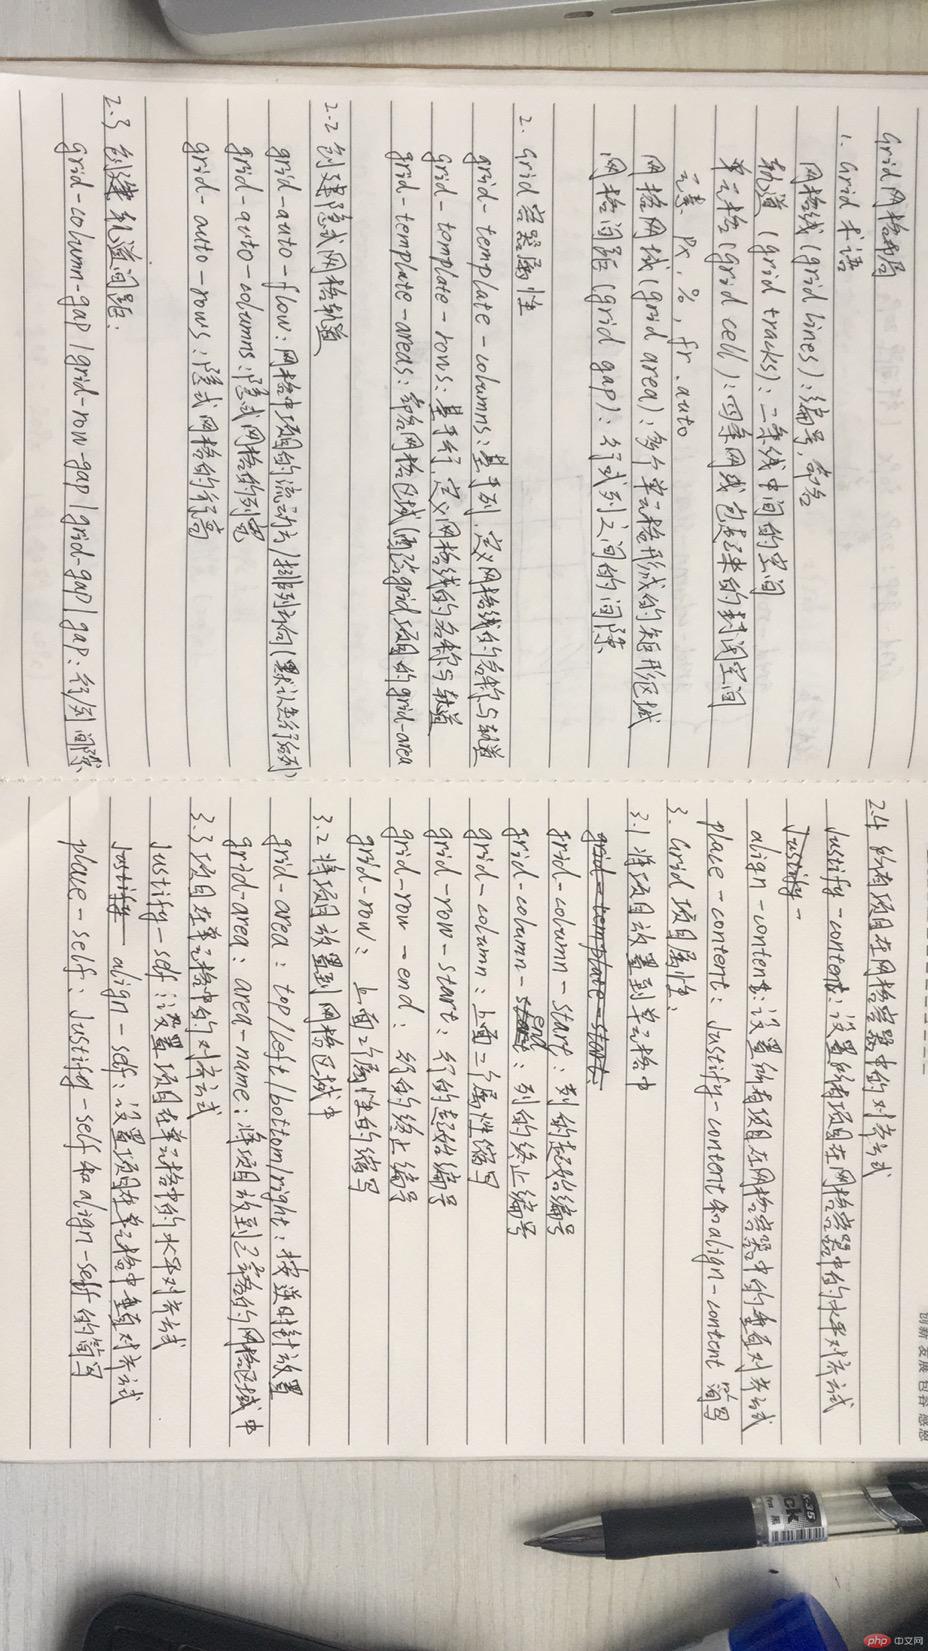 Grid 网格布局
1. Grid 术语
网格线(grid lines):编号,命名
轨道(grid tracks):二条线中间的空间
单元格(grid cell):四条网线包起来的封闭空间
元素 px,%,fr,auto
网格网域(grid area):多个单元格形成的矩形区域
网格间距(grid gap):行或列之间的间隙
2. Grid 容器属性
grid-template-columns:基于列,定义网格线的名称与轨道
grid-template-rows:基于行,定义网格线的名称与轨道
grid-template-areas:命名网格区域 grid项目的grid-area
2.2 创建隐式网格轨道
grid-auto-flow:网格中项目的流动方/排列方向(默认先行后列)
grid-auto-columns:隐式网格的列宽
grid-auto-rows:隐式网格的行高
2.3 创建轨道间距:
grid-column-gap/grid-row-gap/grid-gap/gap:行/列间隙
2.4 所有项目在网格容器中的对齐方式
justify-content:设置所有项目在网格容器中的水平对齐方式
justify-
align-content:设置所有项目在网格容器中的垂直对齐方式
place-content:justify-content和align-content简写
3. Grid 项目属性:
3.1 将项目放置到单元格中
grid-template-start:
grid-column-start:列的起始编号
grid-column-start end:列的终止编号
grid-column:上面二个属性缩写
grid-row-start:行的起始编号
grid-row-end:行的终止编号
grid-row:上面2个属性的缩写
3.2 将项目放置到网格区域中
grid-area:top/left/bottom/right:按逆时针放置
grid-area:area-name:将项目放到已命名的网格区域中
3.3 项目在单元格中的对齐方式
justify-self:设置项目在单元格中的水平对齐方式
justify- align-self:设置项目在单元格中垂直对齐方式
place-self:justify-self和align-self的简写
创新 发展 包容 感恩
K-35
php 中文网